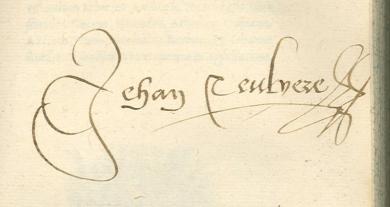 Jehan Teulveze